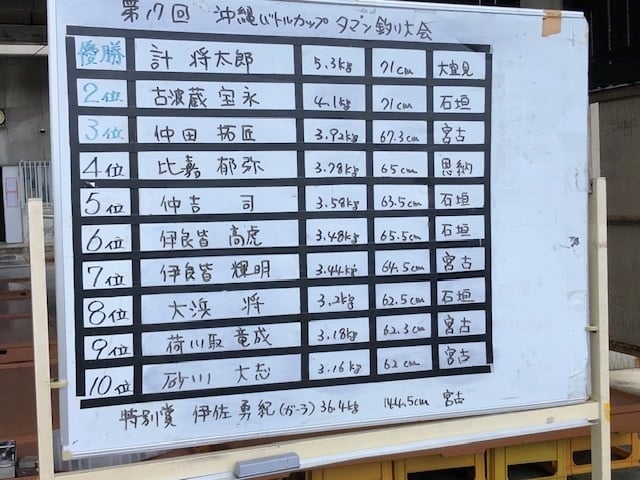 第17回 沖縄バトルカップ タマン釣り大会
優勝 計 将太郎 5.3kg 71cm 大宜見
2位 古波蔵 宝永 4.1kg 71cm 石垣
3位 仲田 拓匠 3.92kg 67.3cm 宮古
4位 比嘉 郁弥 3.78kg 65cm 恩納
5位 仲吉 司 3.58kg 63.5cm 石垣
6位 伊良皆 高虎 3.48kg 65.5cm 石垣
7位 伊良皆 輝明 3.44kg 64.5cm 宮古
8位 大浜 将 3.2kg 62.5cm 石垣
9位 荷川取 竜成 3.18kg 62.3cm 宮古
10位 砂川 大志 3.16kg 62cm 宮古
特別賞 伊佐 勇紀(ガーラ) 36.4kg 144.5cm 宮古